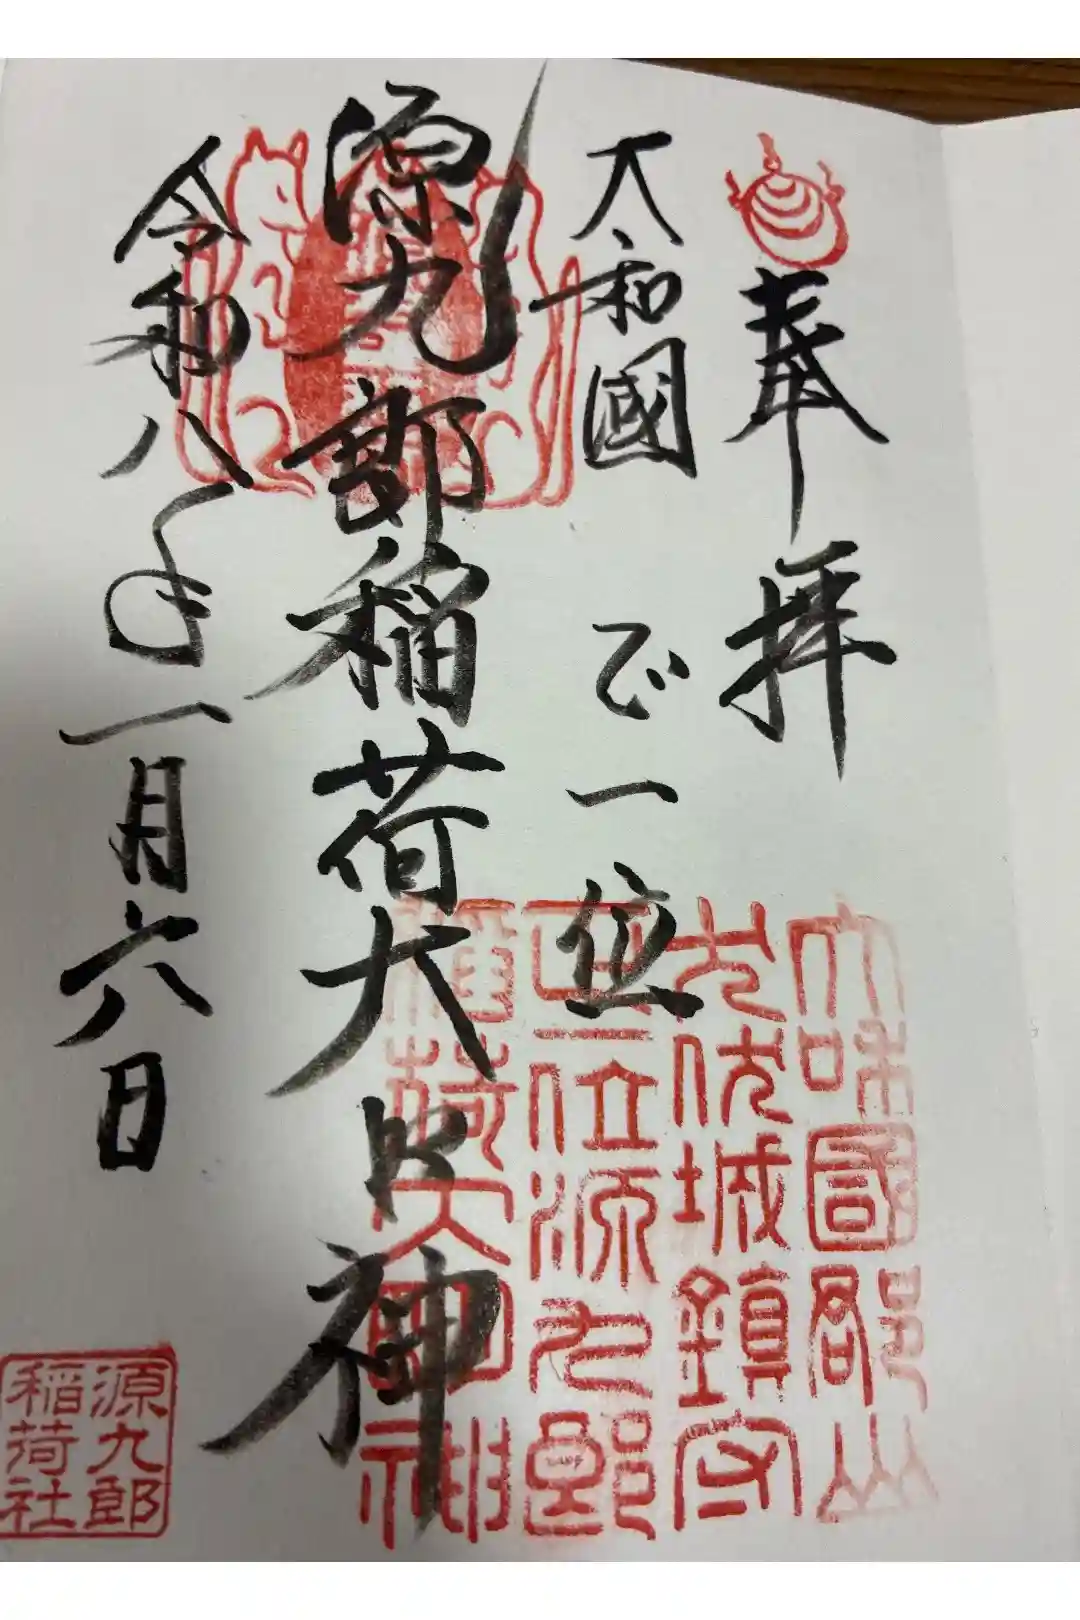 奉拝
大和國 正一位
源九郎稲荷大明神
令和八年一月六日
大和國郡山
九尾城鎮守
正一位源九郎
稲荷大明神
源九郎
稲荷社